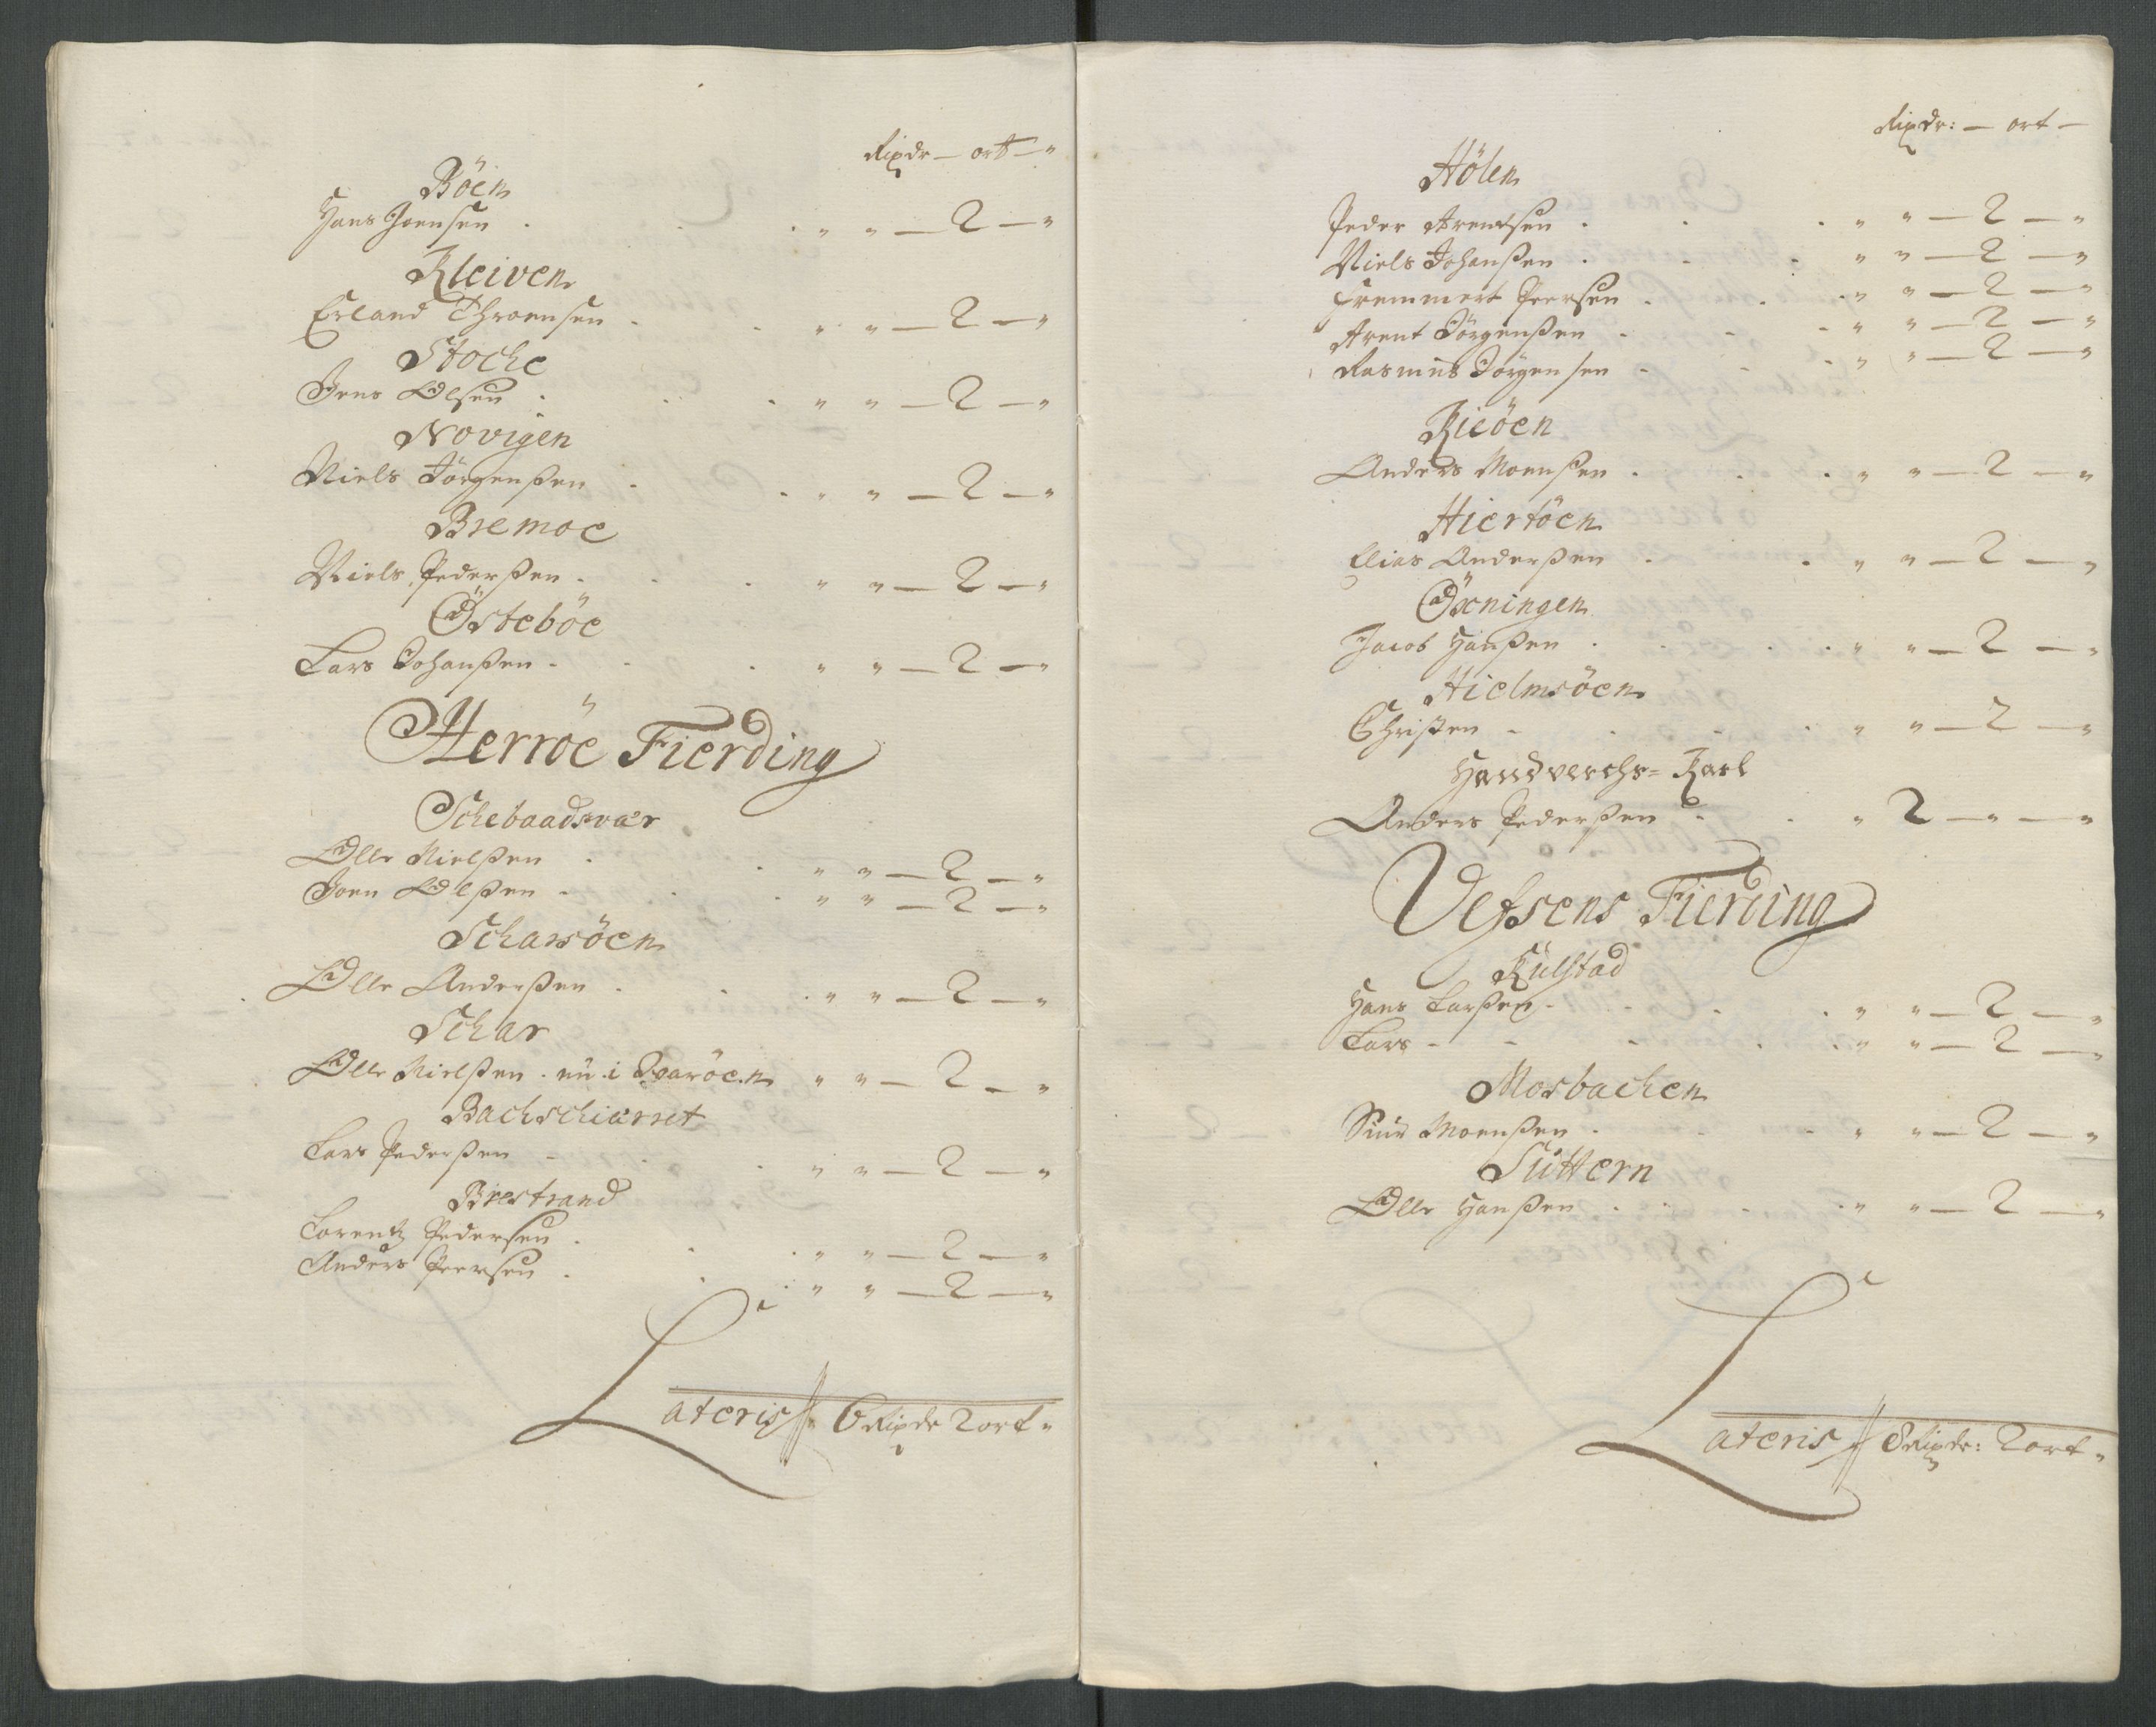 Rixdr — ort — "
Böen
Hans Joensen . . . " " — 2 — "
Kleiven
Erland Throensen . . . " " — 2 — "
Stoche
Jens Olsen . . . " " — 2 — "
Novigen
Niels Jörgenßen . . . " " — 2 — "
Bremoe
Niels Pederßen . . . " " — 2 — "
Östeböe
Lars Johanßen . . . " " — 2 — "
Herröe Fierding
Schebaadsvær
Olle Nielßen . . " " — 2 — "
Joen Olßen . . . " " — 2 — "
Scharsöen
Olle Anderßen . . . " " — 2 — "
Schar
Olle Nielßen . nu i Qvaröen " " — 2 — "
Bachschiærret
Lars Pederßen . . . " " — 2 — "
Brestrand
Lorentz Pedersen . . . " " — 2 — "
Anders Peersen . . . " " — 2 — "
Lateris 6 Rixdr 2 ort "
Rixdr: — ort —
Hölen
Peder Arentsen . . . " " — 2 — "
Niels Johanßen . . . " " — 2 — "
Fremmert Peersen . . . " " — 2 — "
Arent Jörgenßen . . . " " — 2 — "
Rasmus Jörgensen . . . " " — 2 — "
Rieöen
Anders Monßen . . . " " — 2 — "
Hiertöen
Elias Anderßen . . " " — 2 — "
Öxningen
Jacob Hanßen . . . " " — 2 — "
Hielmsöen
Christen . . . . " " — 2 — "
Handverchs= Karl
Anders Pederßen . . " 2 — " — "
Vefsens Fierding
Kulstad
Hans Larßen . . . " " — 2 — "
Lars . . . . " " — 2 — "
Mosbachen
Siur Monßen . . . " " — 2 — "
Suttern
Olle Hanßen . . . " " — 2 — "
Lateris 8 Rixdr: 2 ort "